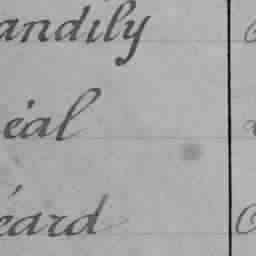 andily
éal
éard